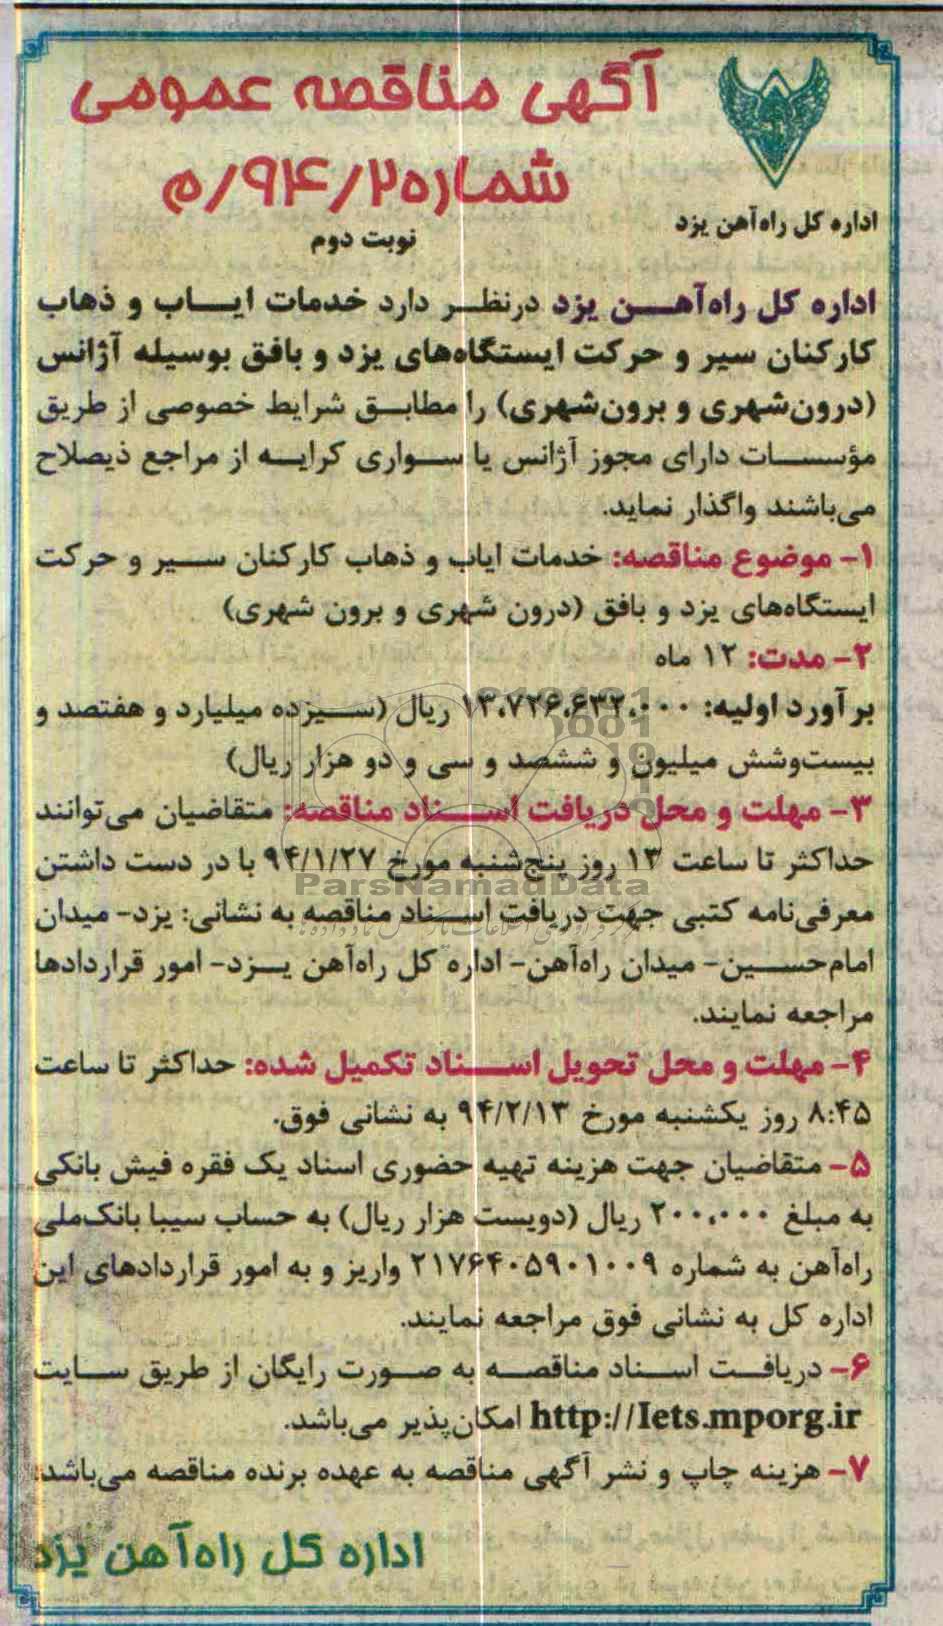 آگهی مناقصه عمومی
شماره۹۴/۲/م
نوبت دوم
اداره کل راه‌آهن یزد
اداره کل راه‌آهن یزد درنظر دارد خدمات ایاب و ذهاب
کارکنان سیر و حرکت ایستگاه‌های یزد و بافق بوسیله آژانس
(درون‌شهری و برون‌شهری) را مطابق شرایط خصوصی از طریق
مؤسسات دارای مجوز آژانس یا سواری کرایه از مراجع ذیصلاح
می‌باشند واگذار نماید.
۱- موضوع مناقصه: خدمات ایاب و ذهاب کارکنان سیر و حرکت
ایستگاه‌های یزد و بافق (درون شهری و برون شهری)
۲- مدت: ۱۲ ماه
برآورد اولیه: ۱۳،۷۲۶،۶۳۲،۰۰۰ ریال (سیزده میلیارد و هفتصد و
بیست‌وشش میلیون و ششصد و سی و دو هزار ریال)
۳- مهلت و محل دریافت اسناد مناقصه: متقاضیان می‌توانند
حداکثر تا ساعت ۱۳ روز پنج‌شنبه مورخ ۹۴/۱/۲۷ با در دست داشتن
ParsNamadData
معرفی‌نامه کتبی جهت دریافت اسناد مناقصه به نشانی: یزد- میدان
امام‌حسین- میدان راه‌آهن- اداره کل راه‌آهن یزد- امور قراردادها
مراجعه نمایند.
۴- مهلت و محل تحویل اسناد تکمیل شده: حداکثر تا ساعت
۸:۴۵ روز یکشنبه مورخ ۹۴/۲/۱۳ به نشانی فوق.
۵- متقاضیان جهت هزینه تهیه حضوری اسناد یک فقره فیش بانکی
به مبلغ ۲۰۰،۰۰۰ ریال (دویست هزار ریال) به حساب سیبا بانک‌ملی
راه‌آهن به شماره ۲۱۷۶۴۰۵۹۰۱۰۰۹ واریز و به امور قراردادهای این
اداره کل به نشانی فوق مراجعه نمایند.
۶- دریافت اسناد مناقصه به صورت رایگان از طریق سایت
http://Iets.mporg.ir امکان‌پذیر می‌باشد.
۷- هزینه چاپ و نشر آگهی مناقصه به عهده برنده مناقصه می‌باشد.
اداره کل راه‌آهن یزد